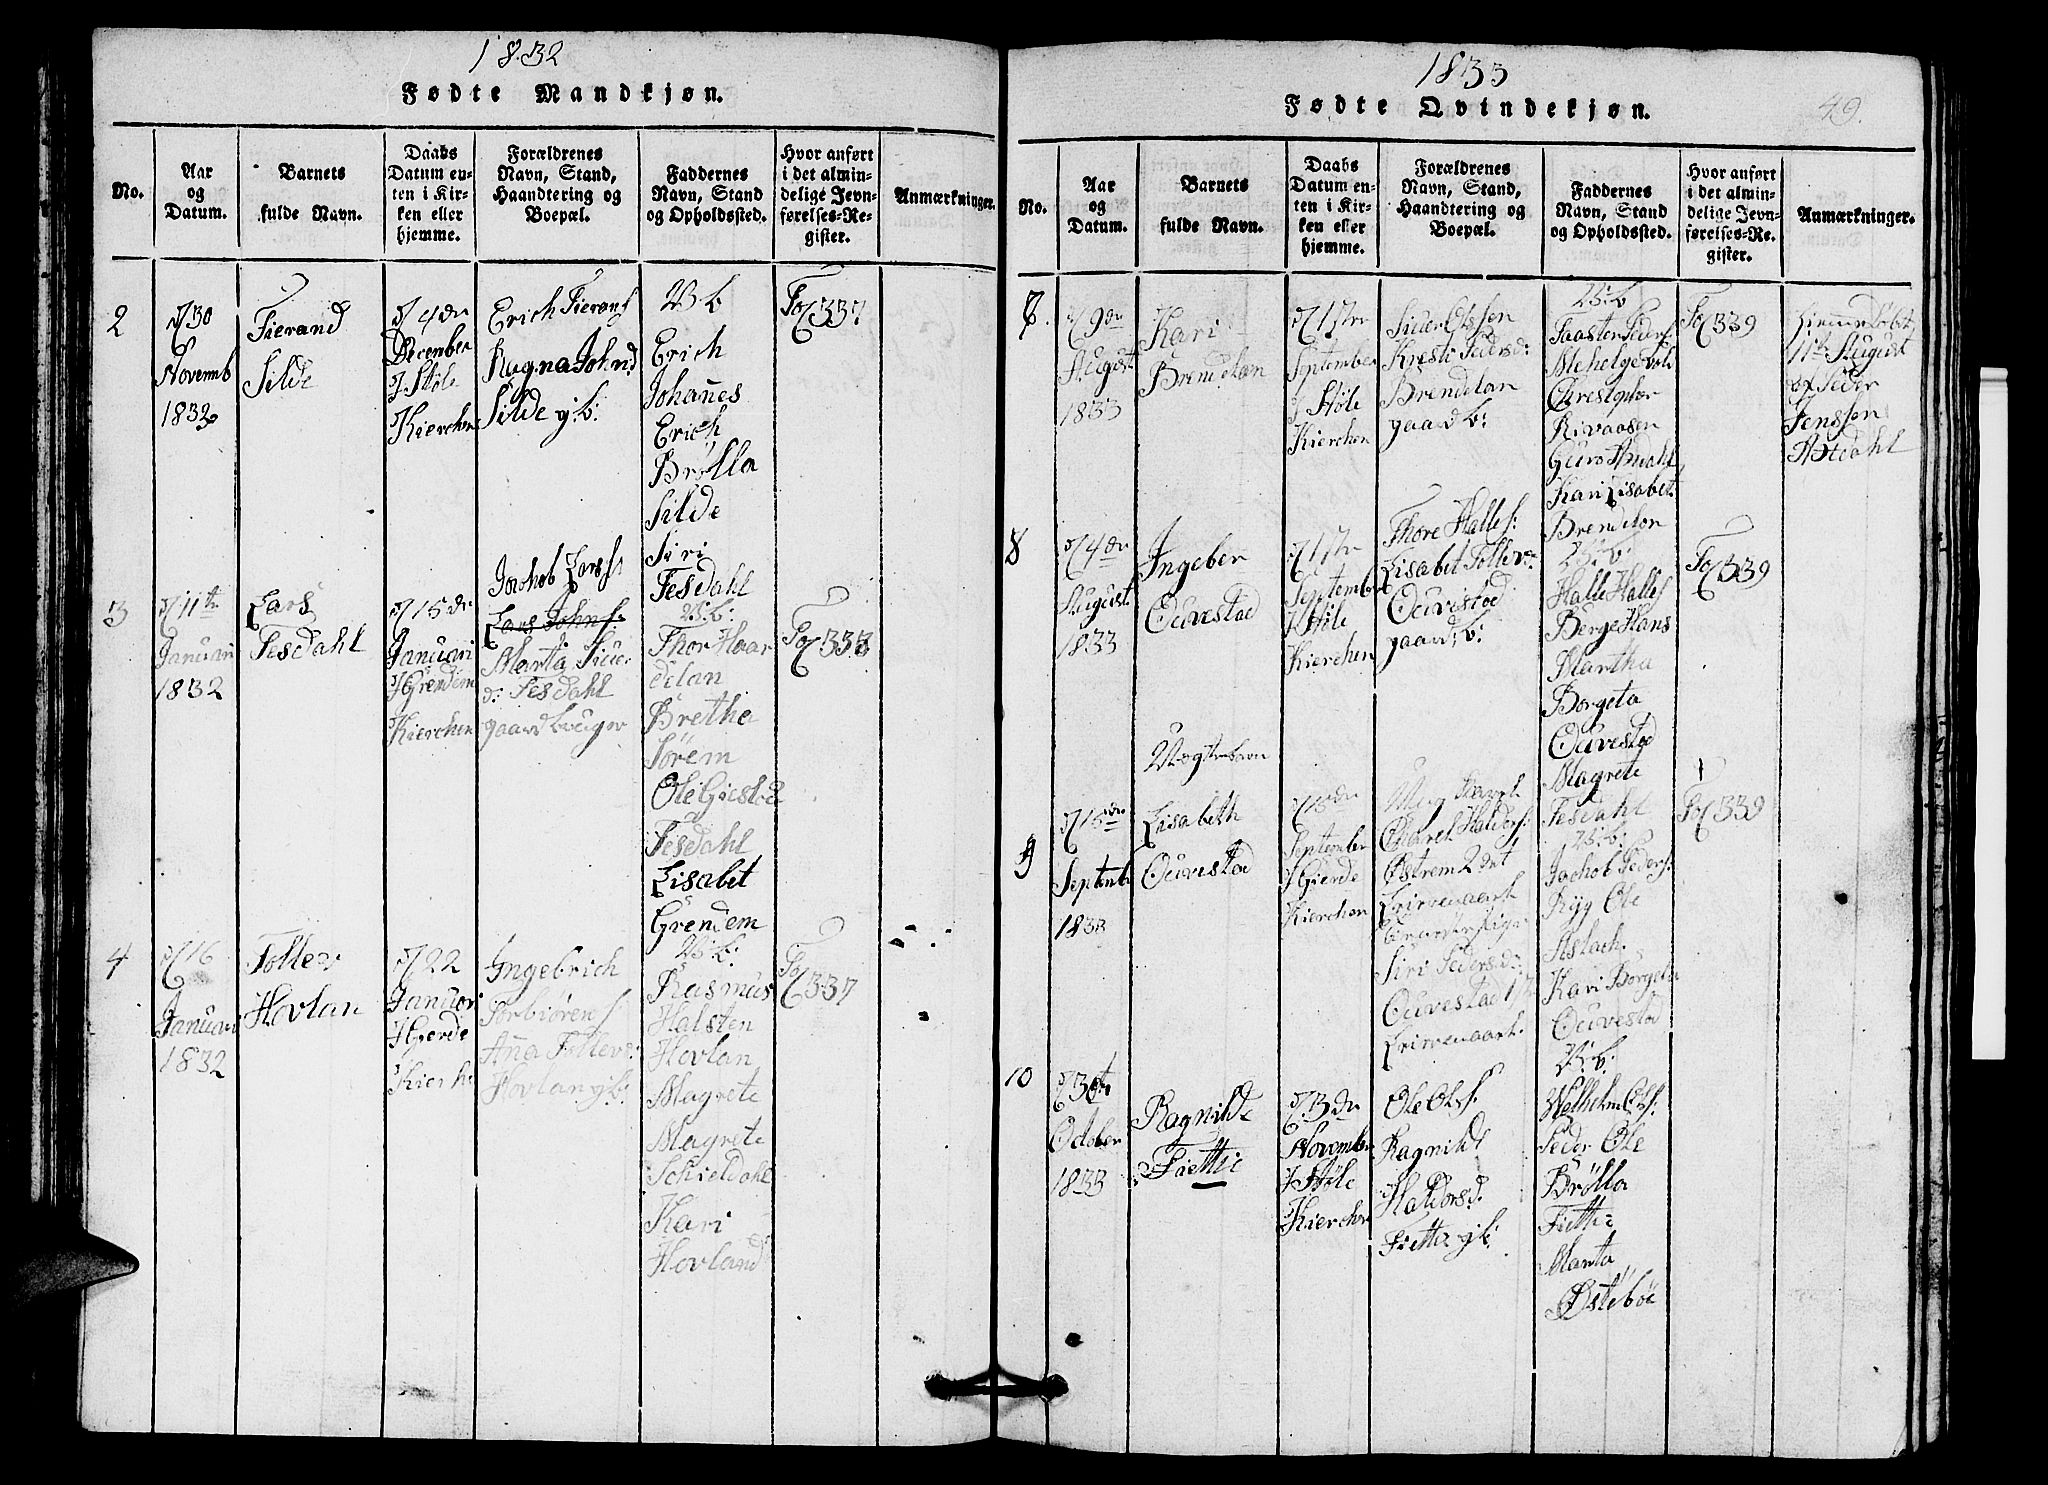 1832
Fødte Mandkjøn.
No.
Aar
og
Datum.
Barnets
fulde Navn.
Daabs
Datum en-
ten i Kir-
ken eller
hjemme.
Forældrenes
Navn, Stand,
Haandtering og
Boepæl.
Faddernes
Navn, Stand
og Opholdssted.
Hvor anført
i det almin-
delige Jevn-
førelses-Re-
gister.
Anmærkninger.
2
d 30
Novemb
1832
Fierand
Silde
d 4de
December
I Støle
Kierchen
Erich Fierans
Ragna Johnsd
Silde g: b:
V: b
Erich
Johañes
Erich
Brølla
Silde
Siri
Tesdahl
Fol 337
3
d 11te
Januari
1832
Lars
Tesdahl
d 15de
Januari
I Grendem
Kierchen
Jachob Larss
Lars Johns:
Marta Siver
d: Tesdahl
gaard bruger
V: b:
Thor Haar
delan
Bretha
Sørem
Ole Giestad
Tesdahl
Lisabet
Grendem
Fol 333
4
d 16
Januari
1832
Tollev
Hovlan
d 22
Januari
I Gierde
Kierche
Ingebrich
Torbiørens
Aña Tollevs:
Hovlan g b:
V: b:
Rasmus
Halsten
Hovlan
Magrete
Magrete
Schieldahl
Kari
Hovland
Fol 337
1833
Fødte Qvindekjøn.
49.
No.
Aar
og
Datum.
Barnets
fulde Navn.
Daabs
Datum en-
ten i Kir-
ken eller
hjemme.
Forældrenes
Navn, Stand,
Haandtering og
Boepæl.
Faddernes
Navn, Stand
og Opholdssted.
Hvor anført
i det almin-
delige Jevn-
førelses-Re-
gister.
Anmærkninger.
7.
d 9de
August
1833
Kari
Brendelan
d 1ste
September
I Støle
Kierchen
Siver Olssen
Kresti Pedersd:
Brendelan
gaard b:
V: b
Faasten Peders:
Mehelgevold
Chrestopher
Rivaasen
Guro Andahl
Kari Lisabet
Brendelan
Fol 339
hiemmedøbt
11te August
af Peder
Jenssen
Østdahl
8
d 4de
August
1833
Ingebor
Ouvestad
d 1ste
Septemb
I Støle
Kierchen
Thore Halles:
Lisabet Tollevs:
Ouvestad
gaard, b:
V: b:
Halle Halles
Berge Hans
Martha
Borgeta
Ouvestad
Magrete
Tesdahl
Fol 339
9
d 15de
Septemb
1833
Uegtebarn
Lisabeth
Ouvestad
d 15de
September
I Gierde
Kierchen
Ung karl
Charel Haldors:
Østrem 2det
Leiermaal
Siri Pedersd:
Ouvestad 1ste
Leiermaal.
V: b:
Jachob Peders:
Ryg Ole
Aslach
Kari Borgeta
Ouvestad
Fol 339
10
d 30te
October
1833
Ragnilde
Fiette
d. 3de
November
I Støle
Kierchen
Ole Ols:
Ragnilde
Haldorsd:
Fietta g b:
V: b:
Welhelm Ols:
Peder Ole
Brølla
Fiette
Marta
Østebøe